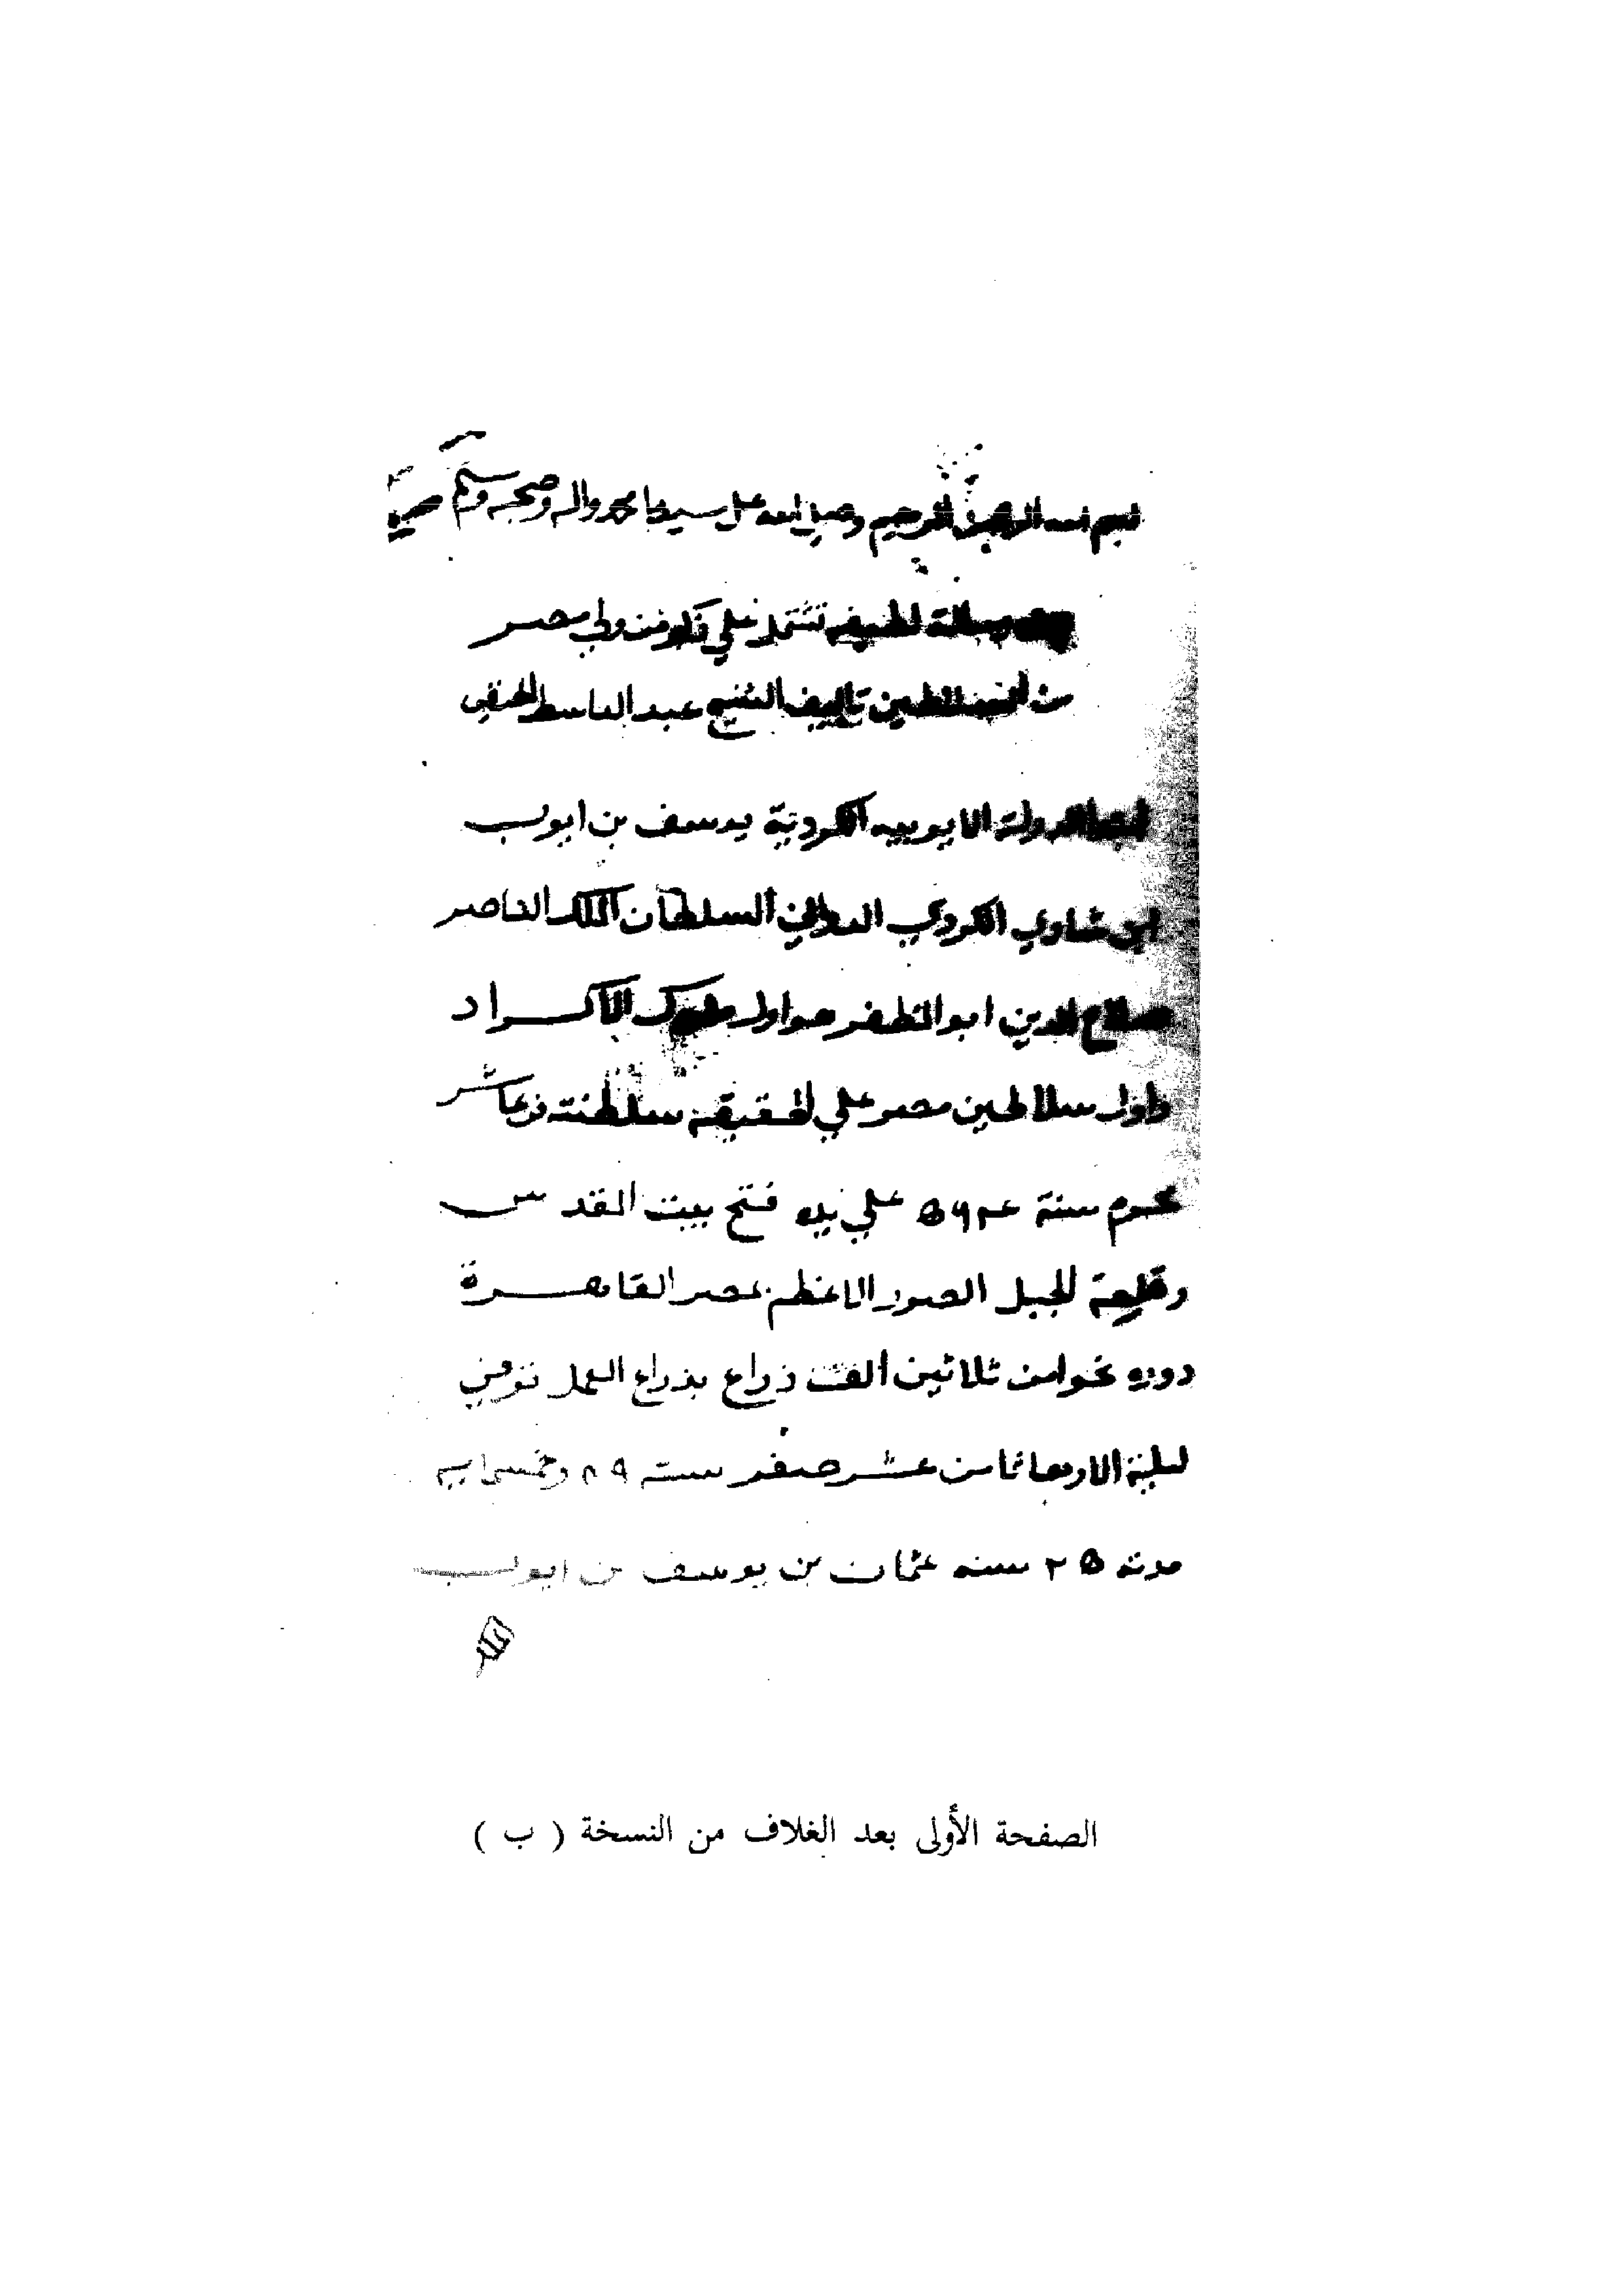 بسم الله الرحمن الرحيم وصلى الله على سيدنا محمد واله وصحبه وسلم
رسالة لطيفه تشتمل علي ذكر من ولي مصر
من السلاطين تاليف الشيخ عبد الباسط الحنفي
الدولة الايوبيه الكردية يوسف بن ايوب
ابن شاوي الكردي السلطان الملك الناصر
صلاح الدين ابو المظفر هو اول ملوك الاكراد
واول سلاطين مصر علي الحقيقه سلطنته في عاشر
محرم سنة علي يده فتح بيت القدس
وقلعة الجبل الصور الاعظم بمصر القاهرة
دوره نحوا من ثلاثين ألف ذراع بذراع العمل توفي
ليلة الاربعا ثامن عشر صفر سنة ٨٩ وخمسمايه
مدته ٢٥ سنه عثمان بن يوسف بن ايوب
الملك
الصفحة الأولى بعد الغلاف من النسخة ( ب )